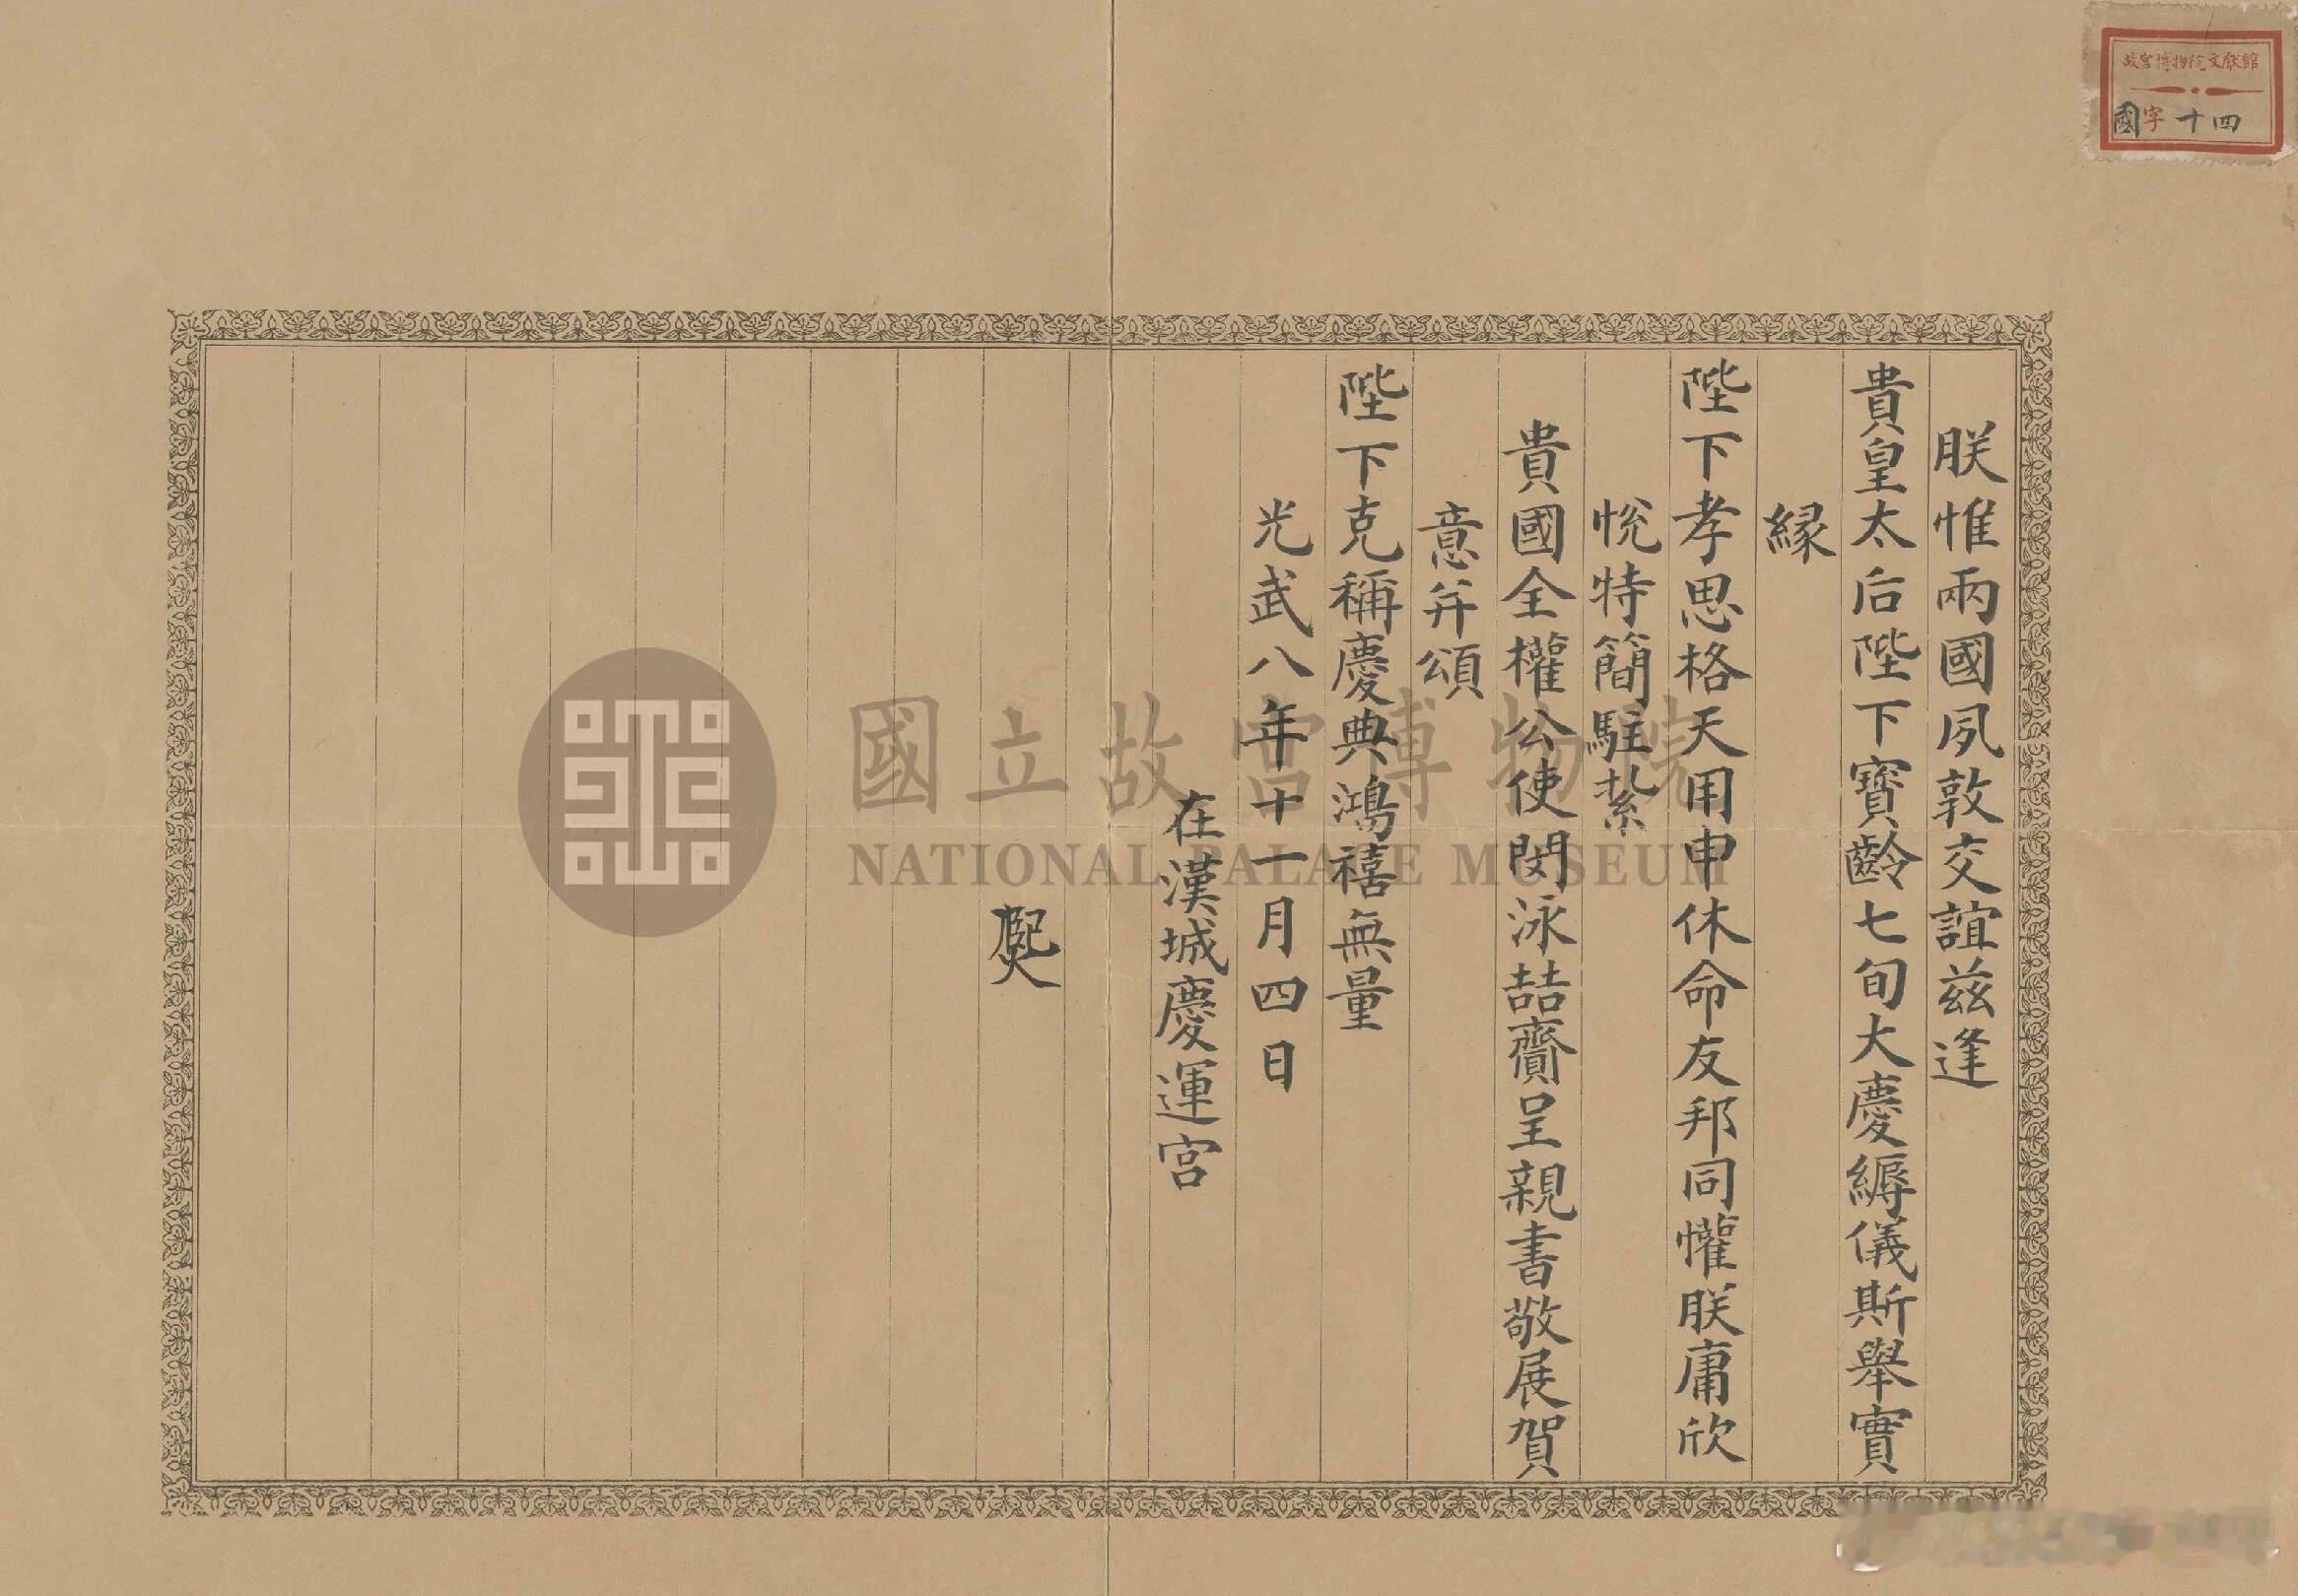 故宮博物院文獻館
國字十四
朕惟兩國夙敦交誼兹逢
貴皇太后陛下寶齡七旬大慶縟儀斯舉實
緣
陛下孝思格天用申休命友邦同懽朕庸欣
悅特簡駐紮
貴國全權公使閔泳喆齎呈親書敬展賀
意并頌
陛下克稱慶典鴻禧無量
光武八年十一月四日
在漢城慶運宮
㷩
國立故宮博物院
NATIONAL PALACE MUSEUM